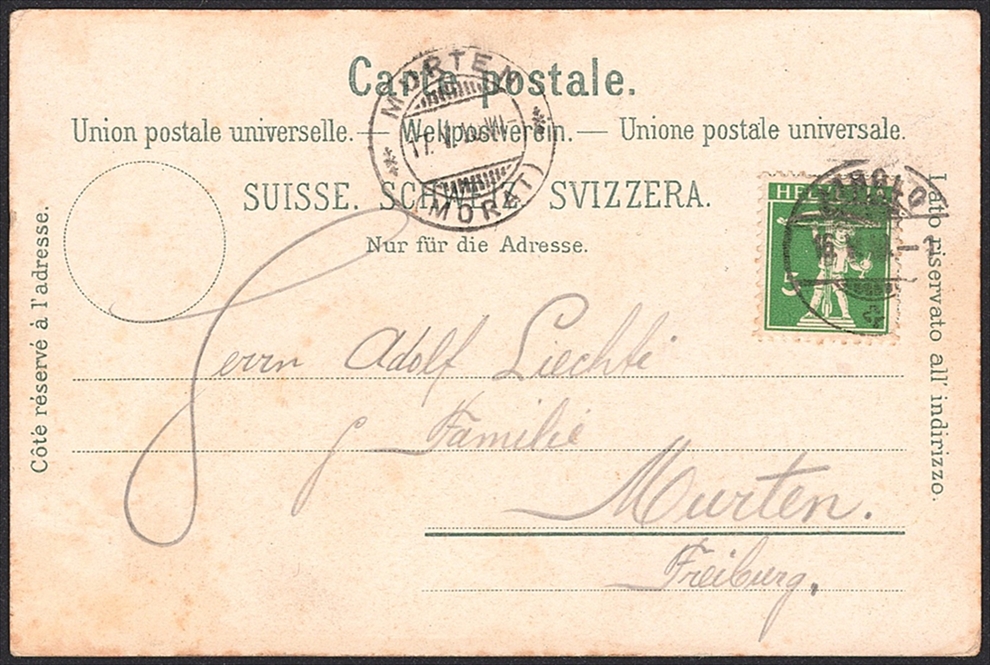 Carte postale.
Union postale universelle. — Weltpostverein. — Unione postale universale.
SUISSE. SCHWEIZ. SVIZZERA.
Nur für die Adresse.
Côté réservé à l'adresse.
Lato riservato all' indirizzo.
MURTEN
(MORAT)
HELVETIA
5
Herrn Adolf Liechti
Familie
Murten.
Freiburg.